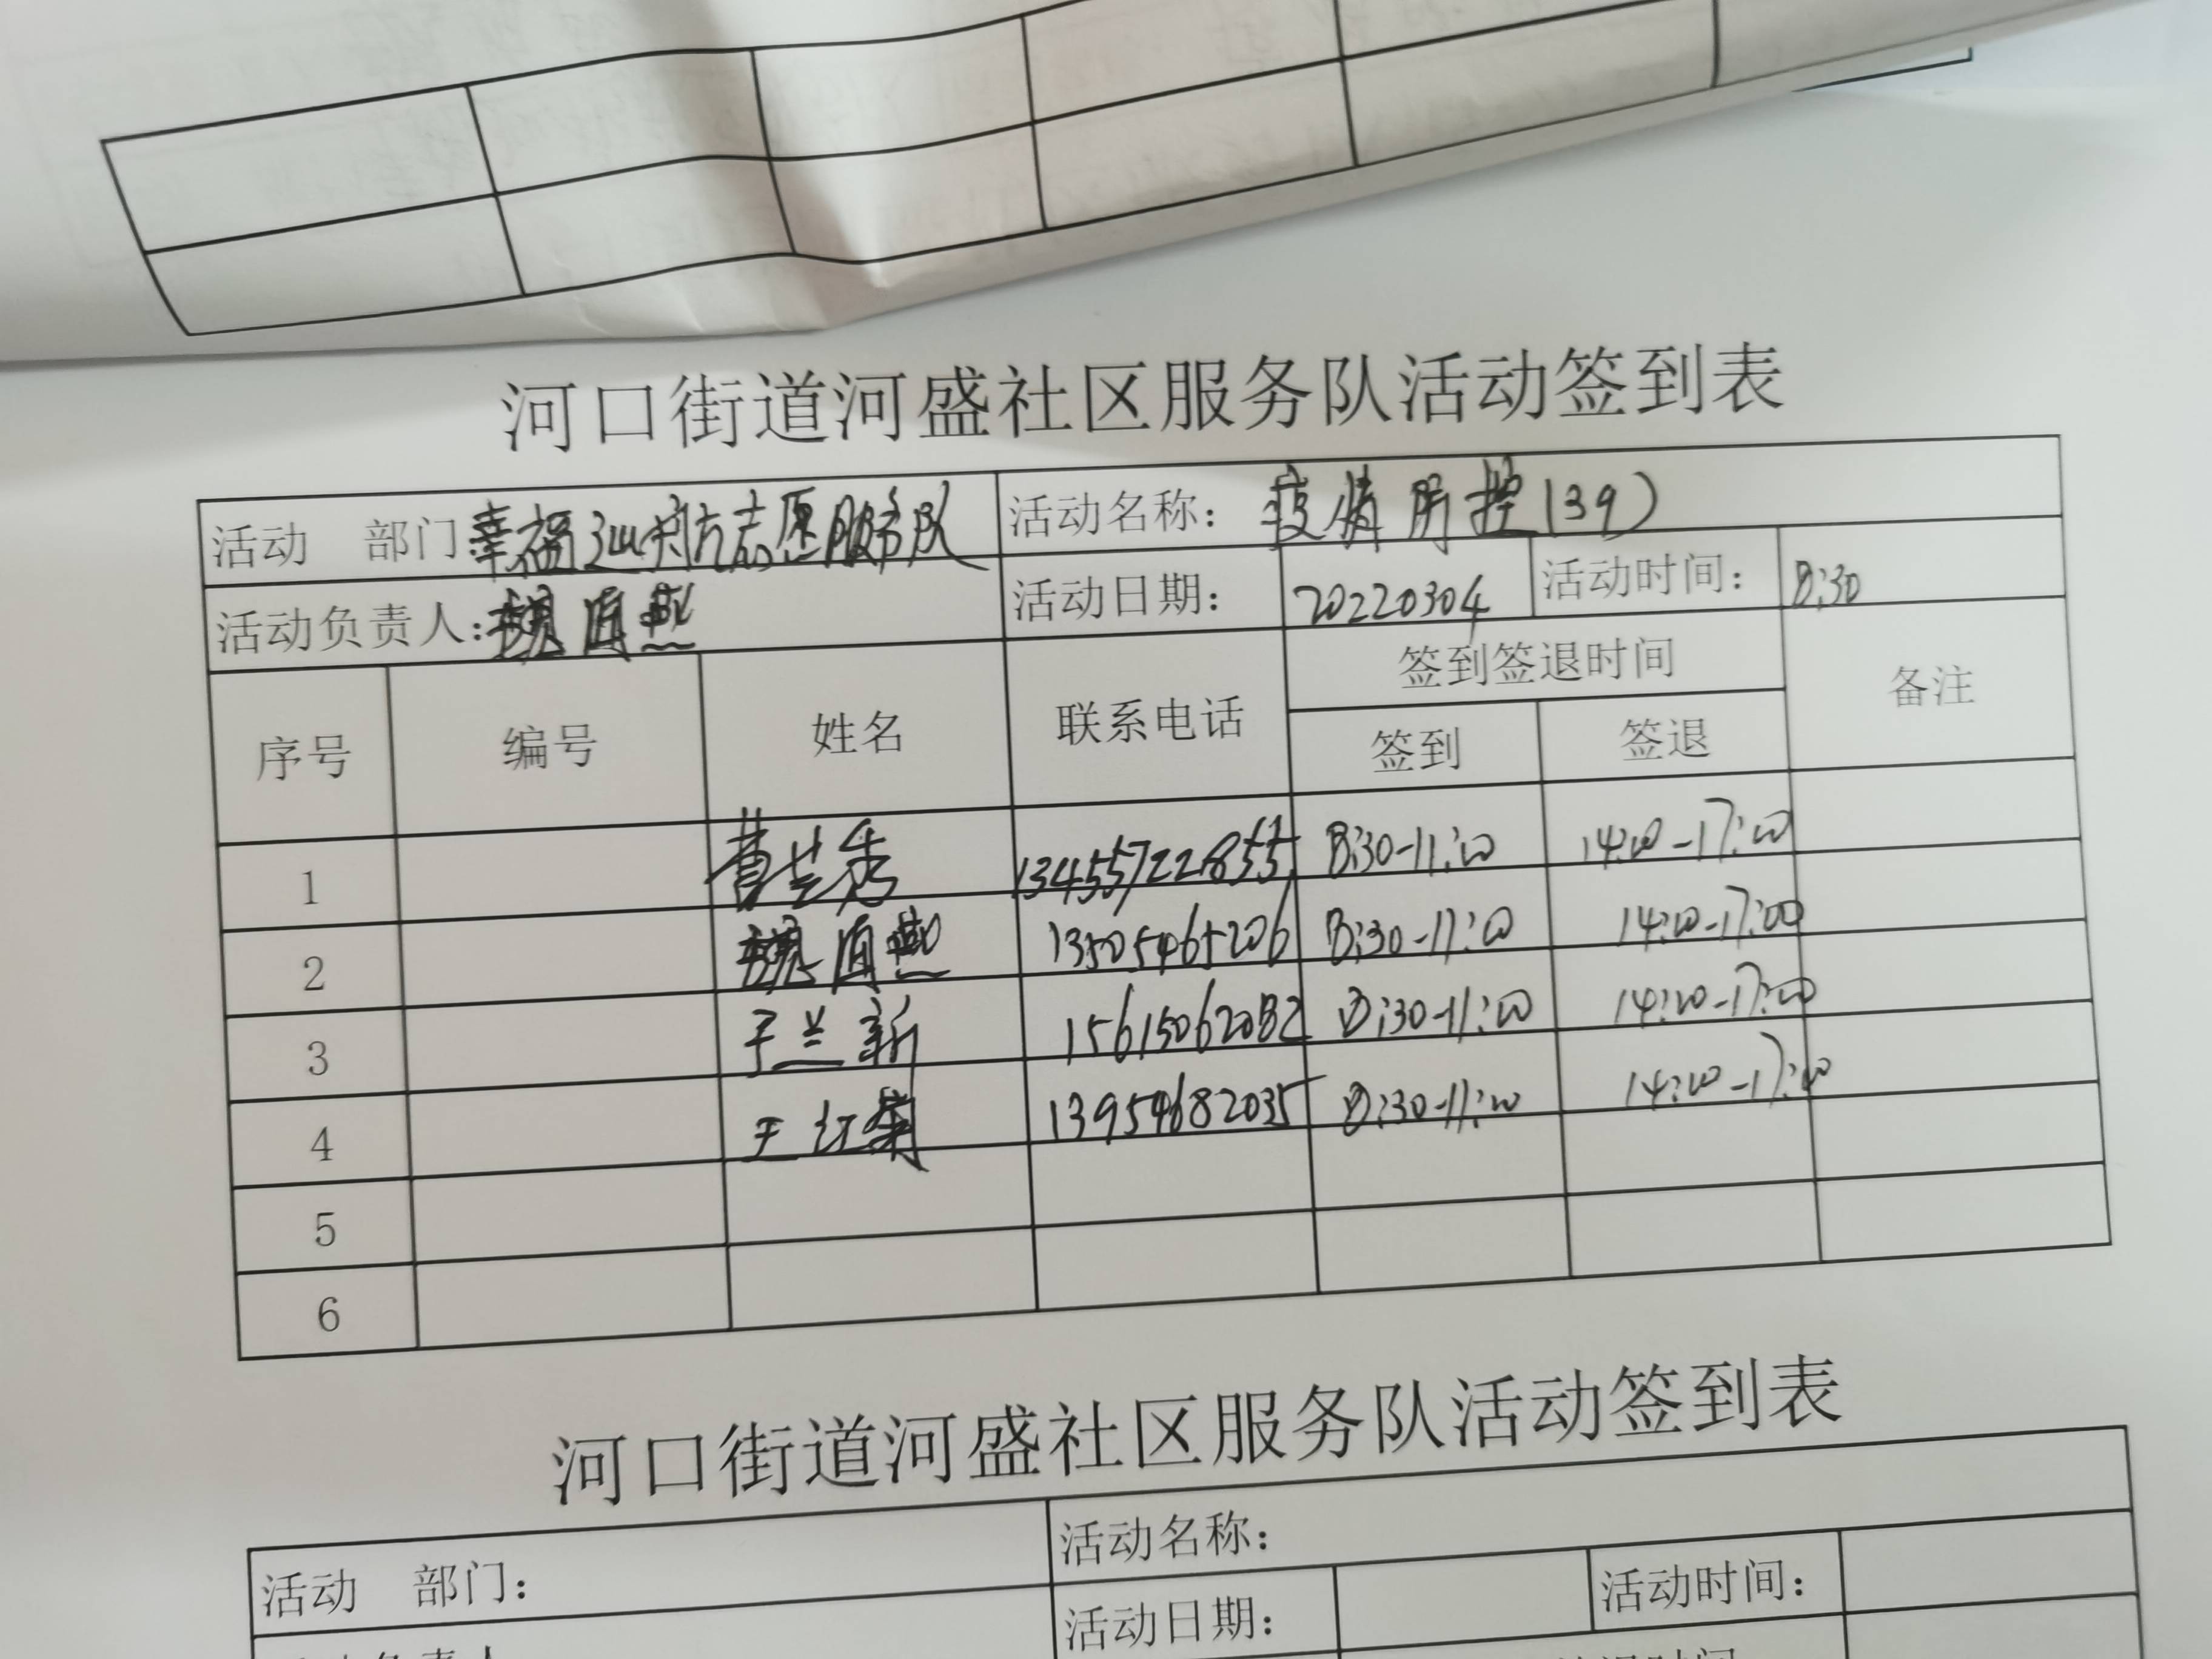 河口街道河盛社区服务队活动签到表
活动 部门 幸福 志愿服务队 活动名称: 疫情防控(39)
活动负责人: 活动日期: 20220304 活动时间: 8:30
序号 编号 姓名 联系电话 签到签退时间 备注
签到 签退
1 13455722855 8:30-11:00 14:00-17:00
2 13505465206 8:30-11:00 14:00-17:00
3 于兰新 15615062082 8:30-11:00 14:00-17:00
4 王红菊 13954682035 8:30-11:00 14:00-17:00
5
6
河口街道河盛社区服务队活动签到表
活动 部门: 活动名称:
活动日期: 活动时间: